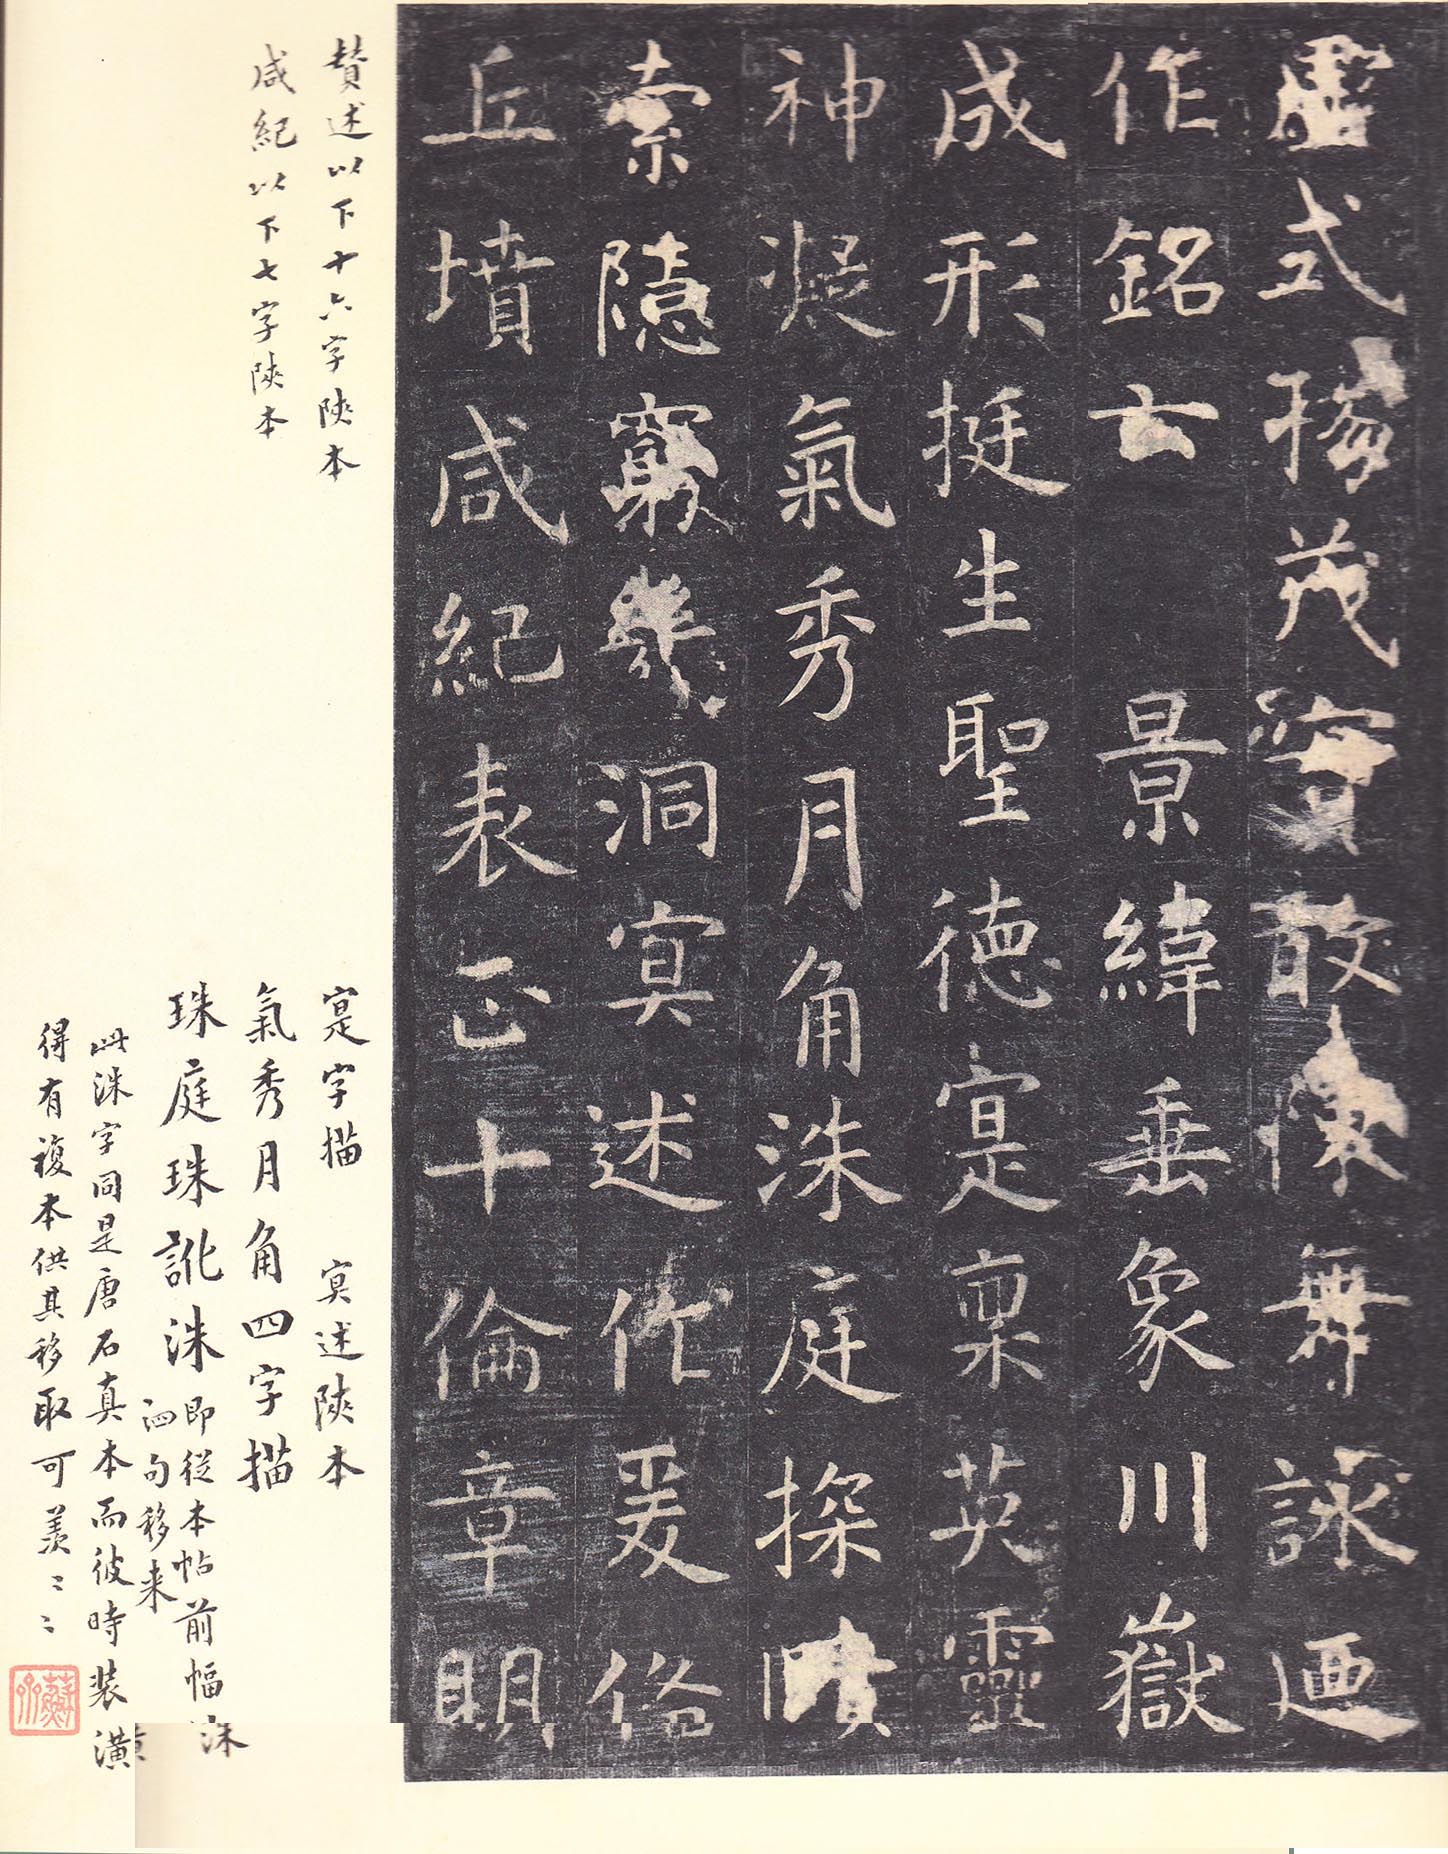 虛式揚茂實敢陳舞詠迺
作銘云景緯垂象川嶽
成形挺生聖德寔稟英靈
神凝氣秀月角洙庭探賾
索隱窮幾洞冥述作爰備
丘墳咸紀表正十倫章明
贊述以下十六字陝本
咸紀以下七字陝本
寔字描 冥述陝本
氣秀月角四字描
珠庭珠訛洙
即從本帖前幅洙
泗句移来
此洙字同是唐石真本而彼時裝潢
得有複本供其移取可羡〻〻